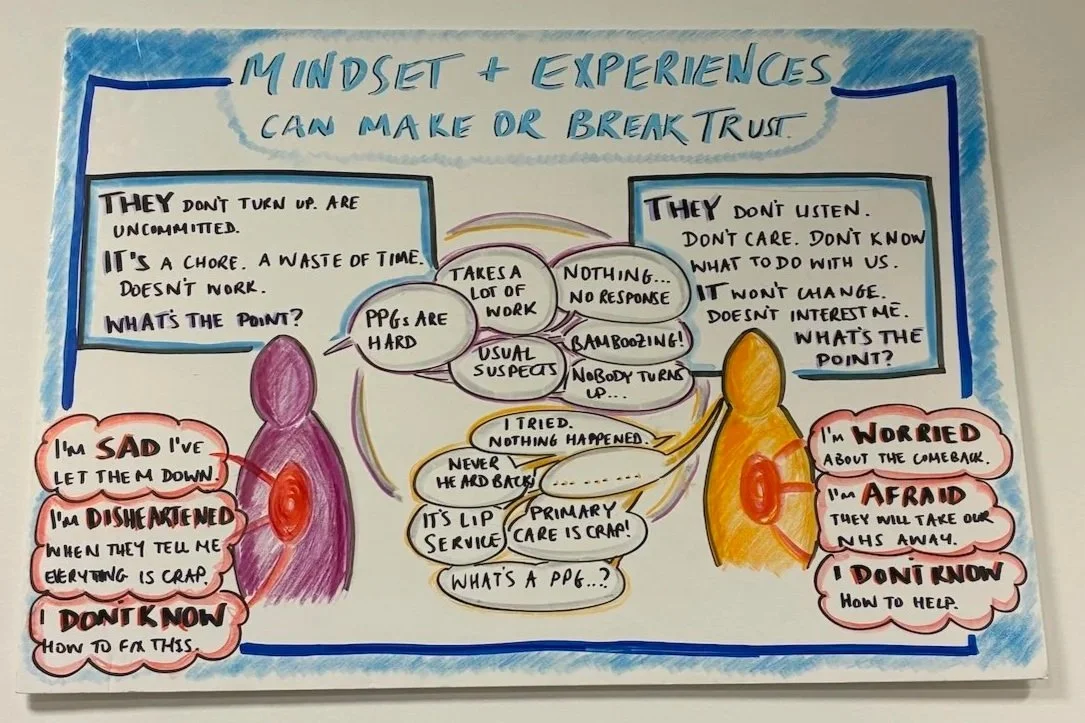 MINDSET + EXPERIENCES
CAN MAKE OR BREAK TRUST.
THEY DON'T TURN UP. ARE
UNCOMMITTED.
IT'S A CHORE. A WASTE OF TIME.
DOESN'T WORK.
WHAT'S THE POINT?
THEY DON'T LISTEN.
DON'T CARE. DON'T KNOW
WHAT TO DO WITH US.
IT WON'T CHANGE.
DOESN'T INTEREST ME.
WHAT'S THE
POINT?
PPGs ARE
HARD
TAKES A
LOT OF
WORK
NOTHING...
NO RESPONSE
USUAL
SUSPECTS
BAMBOOZING!
NOBODY TURNS
UP...
I TRIED.
NOTHING HAPPENED.
NEVER
HEARD BACK!
........
IT'S LIP
SERVICE
PRIMARY
CARE IS CRAP!
WHAT'S A PPG..?
I'M SAD I'VE
LET THEM DOWN.
I'M DISHEARTENED
WHEN THEY TELL ME
EVERYTING IS CRAP.
I DON'T KNOW
HOW TO FIX THIS.
I'M WORRIED
ABOUT THE COMEBACK.
I'M AFRAID
THEY WILL TAKE OUR
NHS AWAY.
I DON'T KNOW
HOW TO HELP.